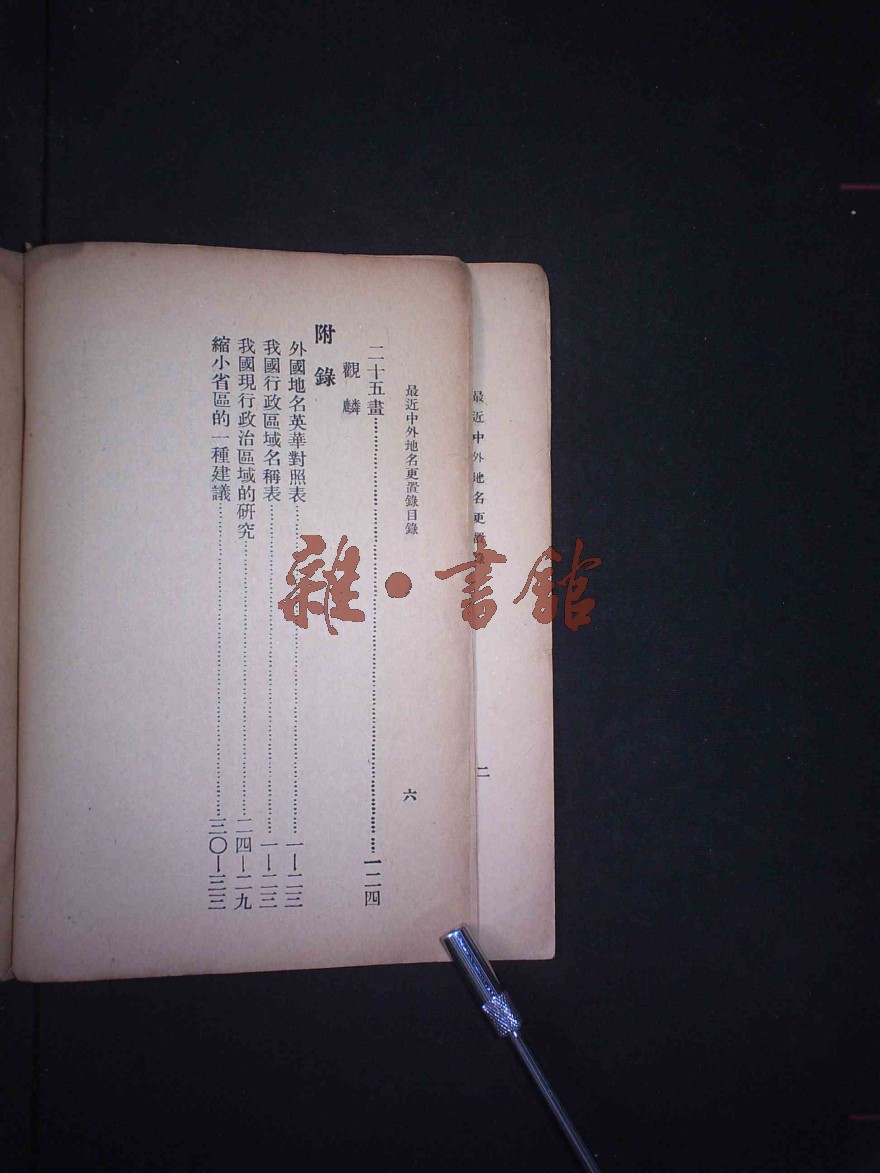 最近中外地名更置錄
二
最近中外地名更置錄目錄
六
二十五畫……一二四
觀 麟
附錄
外國地名英華對照表……一—二三
我國行政區域名稱表……一—二三
我國現行政治區域的研究……二四—二九
縮小省區的一種建議……三〇—三三
雜·書館